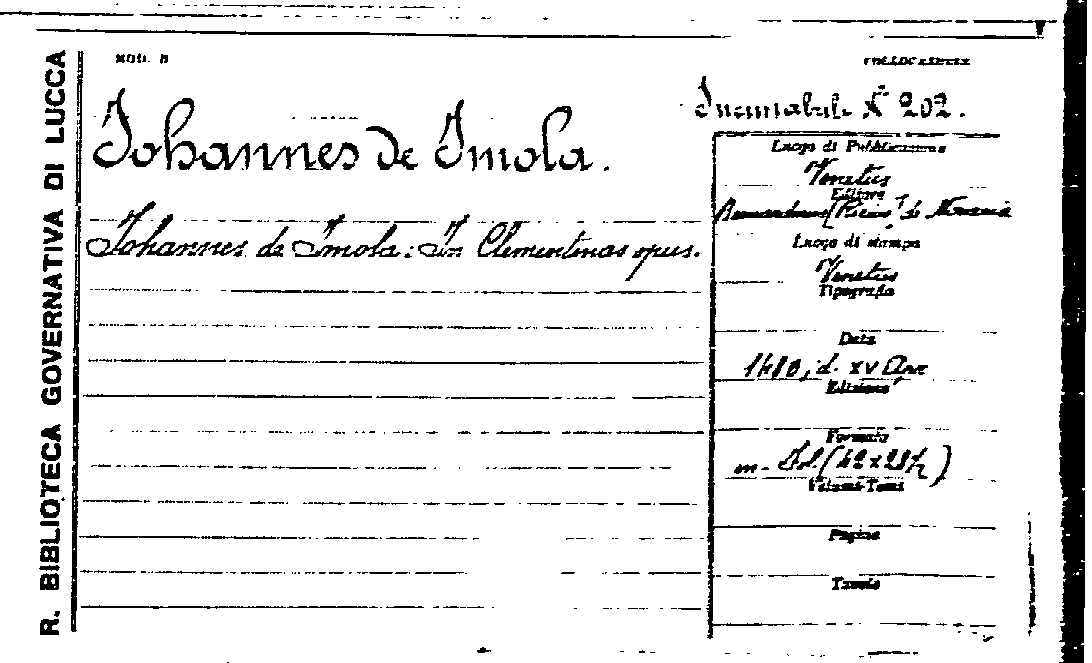 R. BIBLIOTECA GOVERNATIVA DI LUCCA
MOD. B
COLLOCAZIONE
Incunabulo N° 202.
Johannes de Imola.
Johannes de Imola: In Clementinas opus.
Luogo di Pubblicazione
Venetus
Editore
de Novaria
Luogo di stampa
Venetus
Tipografia
Data
1480, d. XV
Edizione
Formato
m. Fol. (42 x
Volumi-Tomi
Pagine
Tavole